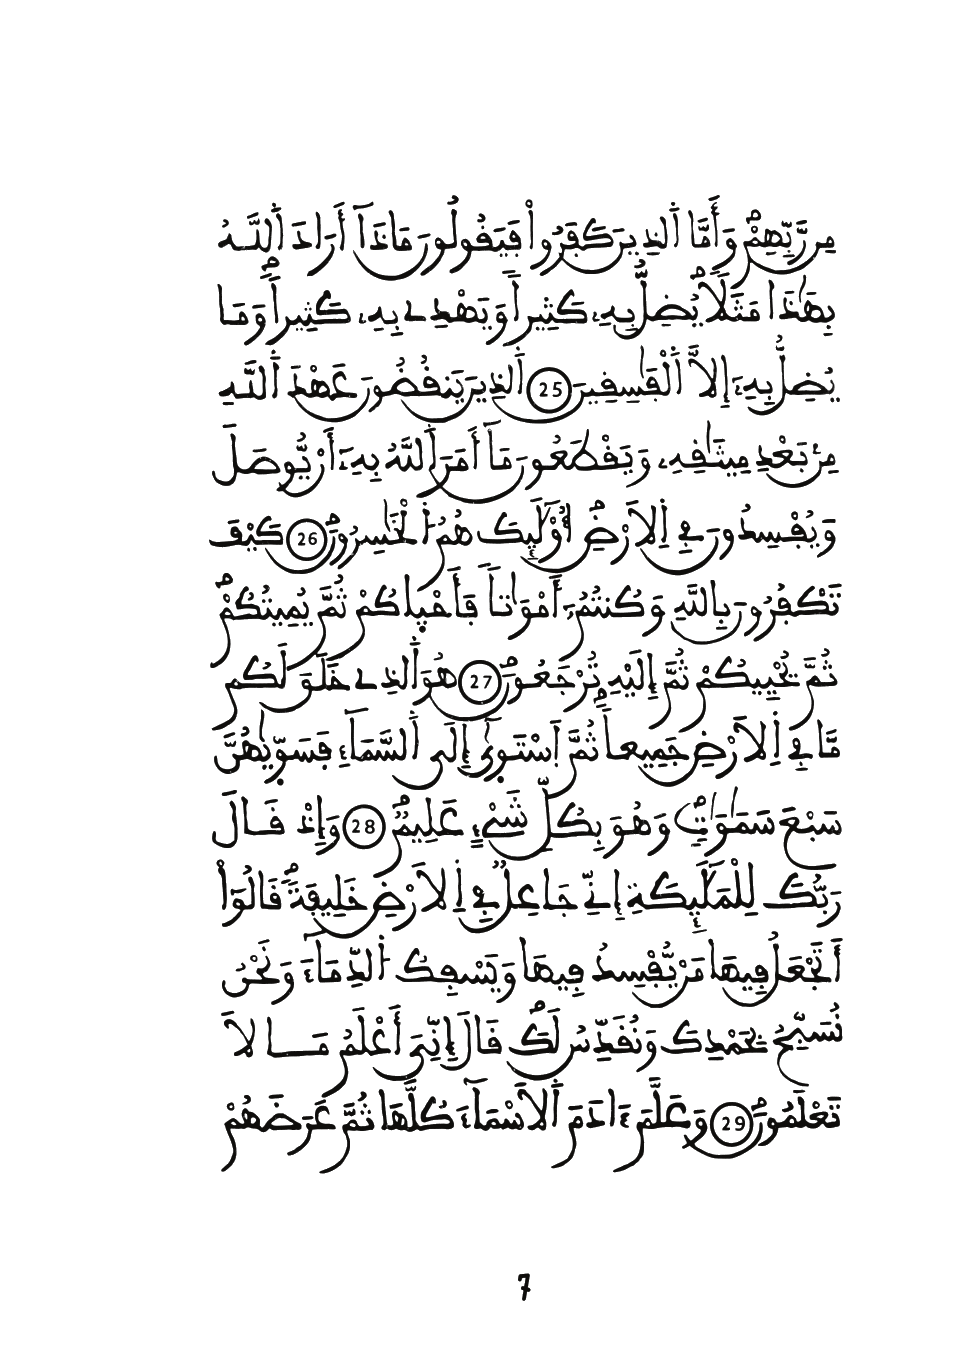 مِن رَّبِّهِمْۖ وَأَمَّا اَ۬لذِينَ كَفَرُواْ فَيَقُولُونَ مَاذَآ أَرَادَ اَ۬للَّهُ
بِهَٰذَا مَثَلاٗۘ يُضِلُّ بِهِۦ كَثِيراٗ وَيَهْدِے بِهِۦ كَثِيراٗۖ وَمَا
يُضِلُّ بِهِۦٓ إِلَّا اَ۬لْفَٰسِقِينَ 25 اَ۬لذِينَ يَنقُضُونَ عَهْدَ اَ۬للَّهِ
مِنۢ بَعْدِ مِيثَٰقِهِۦ وَيَقْطَعُونَ مَآ أَمَرَ اَ۬للَّهُ بِهِۦٓ أَنْ يُّوصَلَ
وَيُفْسِدُونَ فِے اِ۬لَارْضِۖ أُوْلَٰٓئِكَ هُمُ اُ۬لْخَٰسِرُونَۖ 26 كَيْفَ
تَكْفُرُونَ بِاللَّهِ وَكُنتُمُۥٓ أَمْوَٰتاٗ فَأَحْي۪اكُمْ ثُمَّ يُمِيتُكُمْۖ
ثُمَّ يُحْيِيكُمْ ثُمَّ إِلَيْهِ تُرْجَعُونَۖ 27 هُوَ اَ۬لذِے خَلَقَ لَكُم
مَّا فِے اِ۬لَارْضِ جَمِيعاٗۖ ثُمَّ اَ۪سْتَو۪ىٰٓ إِلَي اَ۬لسَّمَآءِ فَسَوّ۪يٰهُنَّ
سَبْعَ سَمَٰوَٰتٖۖ وَهُوَ بِكُلِّ شَےْءٍ عَلِيمٞۖ 28 وَإِذْ قَالَ
رَبُّكَ لِلْمَلَٰٓئِكَةِ إِنِّے جَاعِلٞ فِے اِ۬لَارْضِ خَلِيفَةٗۖ قَالُوٓاْ
أَتَجْعَلُ فِيهَا مَنْ يُّفْسِدُ فِيهَا وَيَسْفِكُ اُ۬لدِّمَآءَ وَنَحْنُ
نُسَبِّحُ بِحَمْدِكَ وَنُقَدِّسُ لَكَۖ قَالَ إِنِّيَ أَعْلَمُ مَا لَا
تَعْلَمُونَۖ 29 وَعَلَّمَ ءَادَمَ اَ۬لَاسْمَآءَ كُلَّهَا ثُمَّ عَرَضَهُمْ
7